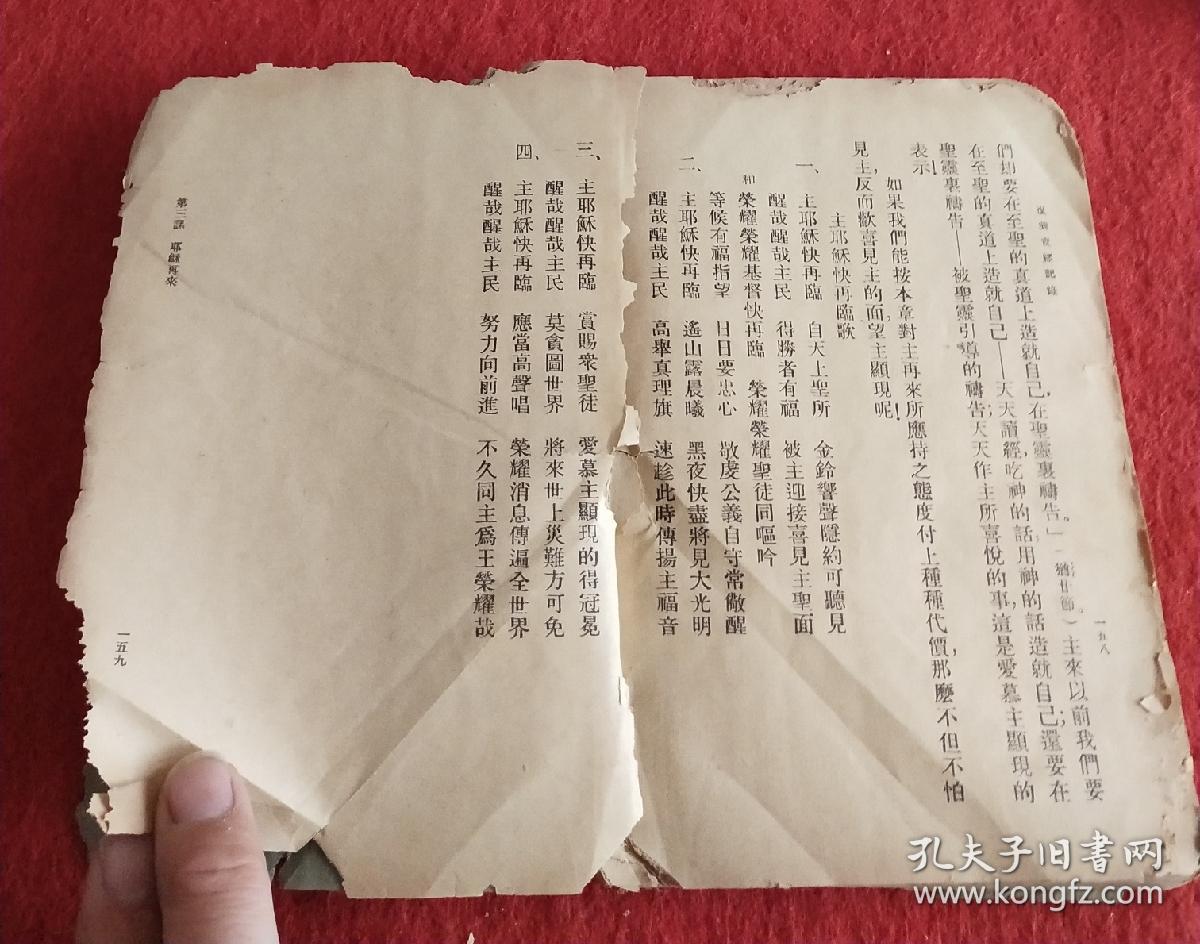 一五八
們却要在至聖的真道上造就自己,在聖靈裏禱告。」 主來以前我們要
在至聖的真道上造就自己——天天讀經吃神的話,用神的話造就自己;還要在
聖靈裏禱告——被聖靈引導的禱告;天天作主所喜悅的事,這是愛慕主顯現的
表示!
如果我們能按本章對主再來所應持之態度付上種種代價,那麼不但不怕
見主,反而歡喜見主的面,望主顯現呢!
主耶穌快再臨歌
一、 主耶穌快再臨 自天上聖所 金鈴響聲隱約可聽見
醒哉醒哉主民 得勝者有福 被主迎接喜見主聖面
和 榮耀榮耀基督快再臨 榮耀榮耀聖徒同嘔吟
等候有福指望 日日要忠心 敬虔公義自守常儆醒
二、 主耶穌快再臨 遙山露晨曦 黑夜快盡將見大光明
醒哉醒哉主民 高舉真理旗 速趁此時傳揚主福音
三、 主耶穌快再臨 賞賜衆聖徒 愛慕主顯現的得冠冕
醒哉醒哉主民 莫貪圖世界 將來世上災難方可免
四、 主耶穌快再臨 應當高聲唱 榮耀消息傳遍全世界
醒哉醒哉主民 努力向前進 不久同主爲王榮耀哉
第三課 耶穌再來
一五九
孔夫子旧书网
www.kongfz.com